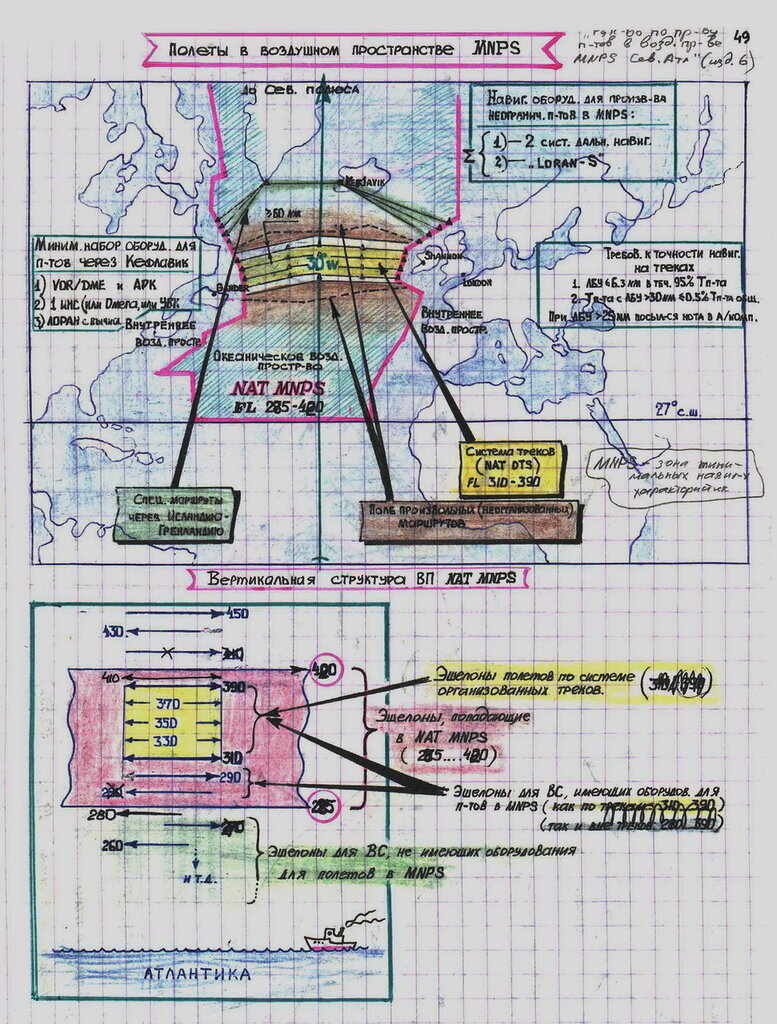 49
"рук-во по пр-ву
п-тов в возд. пр-ве
MNPS Сев. Атл" (изд. 6)
Полеты в воздушном пространстве MNPS
до Сев. полюса
Навиг. оборуд. для произв-ва
неогранич. п-тов в MNPS:
Σ { 1) — 2 сист. дальн. навиг.
2) — "LORAN-S"
Keflavik
>60 nm
Миним. набор оборуд. для
п-тов через Кефлавик
1) VOR/DME и АРК
2) 1 ИНС (или Omega, или УВК
3) ЛОРАН с вычисл.
Gander
30°w
Shannon
London
Требов. к точности навиг.
на треках
1. ЛБУ ≤ 6.3 nm в теч. 95% Тп-та
2. Тп-та с ЛБУ >30nm ≤ 0.5% Тп-та общ.
При ЛБУ >25nm посыл-ся нота в А/комп.
Внутреннее
возд. простр.
Внутреннее
возд. простр.
Океаническое возд.
простр-во
NAT MNPS
FL 285-420
27° с.ш.
Система треков
(NAT OTS)
FL 310-390
MNPS - зона мини-
мальных навиг-х
характеристик
Спец. маршруты
через Исландию-
Гренландию
Поле произвольных (неорганизованных)
маршрутов
Вертикальная структура ВП NAT MNPS
450
430
410
390
370
350
330
310
290
280
270
260
и т.д.
420
285
Эшелоны полетов по системе
организованных треков. (310/390)
Эшелоны, попадающие
в NAT MNPS
(285....420)
Эшелоны для ВС, имеющих оборудов. для
п-тов в MNPS (как по трекам 310 390)
(так и вне треков 390)
Эшелоны для ВС, не имеющих оборудования
для полетов в MNPS
АТЛАНТИКА